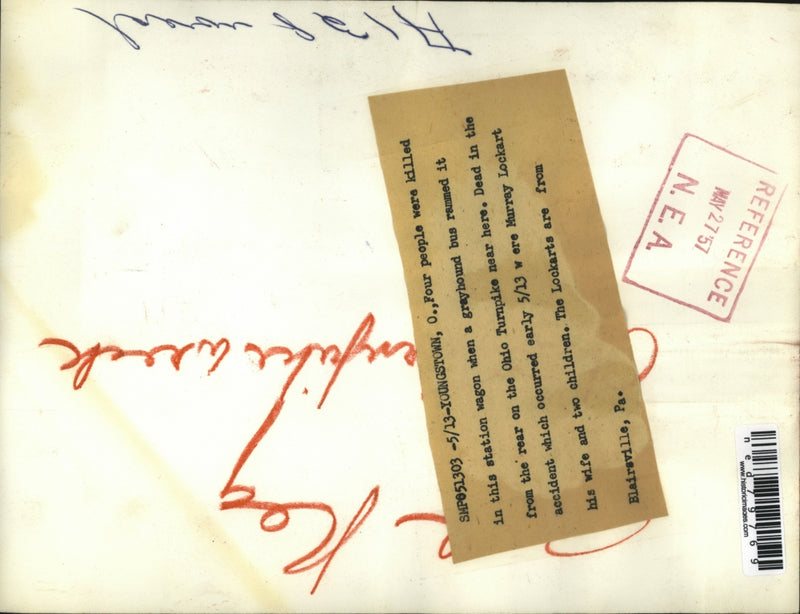 SMP051303 -5/13-YOUNGSTOWN, O.,Four people were killed
in this station wagon when a grayhound bus rammed it
from the rear on the Ohio Turnpike near here. Dead in the
accident which occurred early 5/13 w ere Murray Lockart
his wife and two children. The Lockarts are from
Blairsville, Pa.
REFERENCE
MAY 27 '57
N. E. A.
wreck
Reg
ned79769
www.historicimages.com